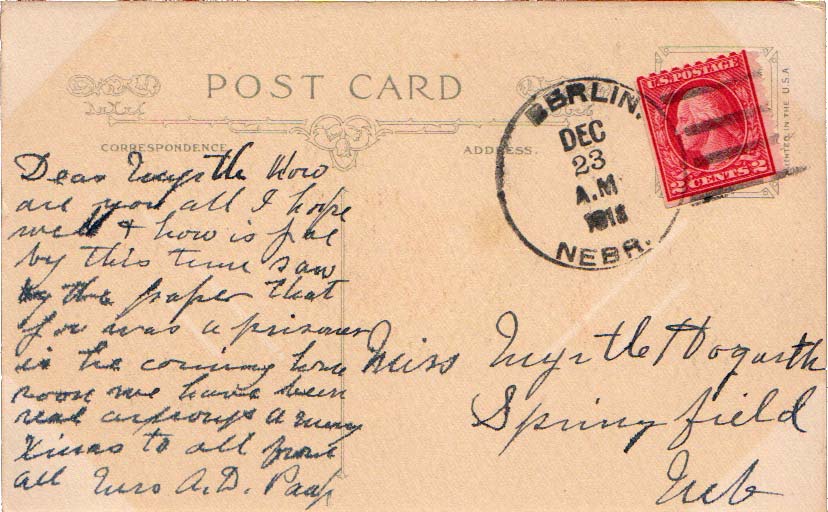 POST CARD
CORRESPONDENCE
ADDRESS.
BERLIN.
DEC
23
A.M
NEBR.
U.S. POSTAGE
2 CENTS 2
PRINTED IN THE U.S.A
Dear Myrtle How
are you all I hope
well & how is Joe
by this time saw
by the paper that
Joe was a prisoner
is he coming home
soon we have been
real anxious a mery
Xmas to all from
all Mrs A.D. Paap
Miss Myrtle Hogarth
Springfield
Neb